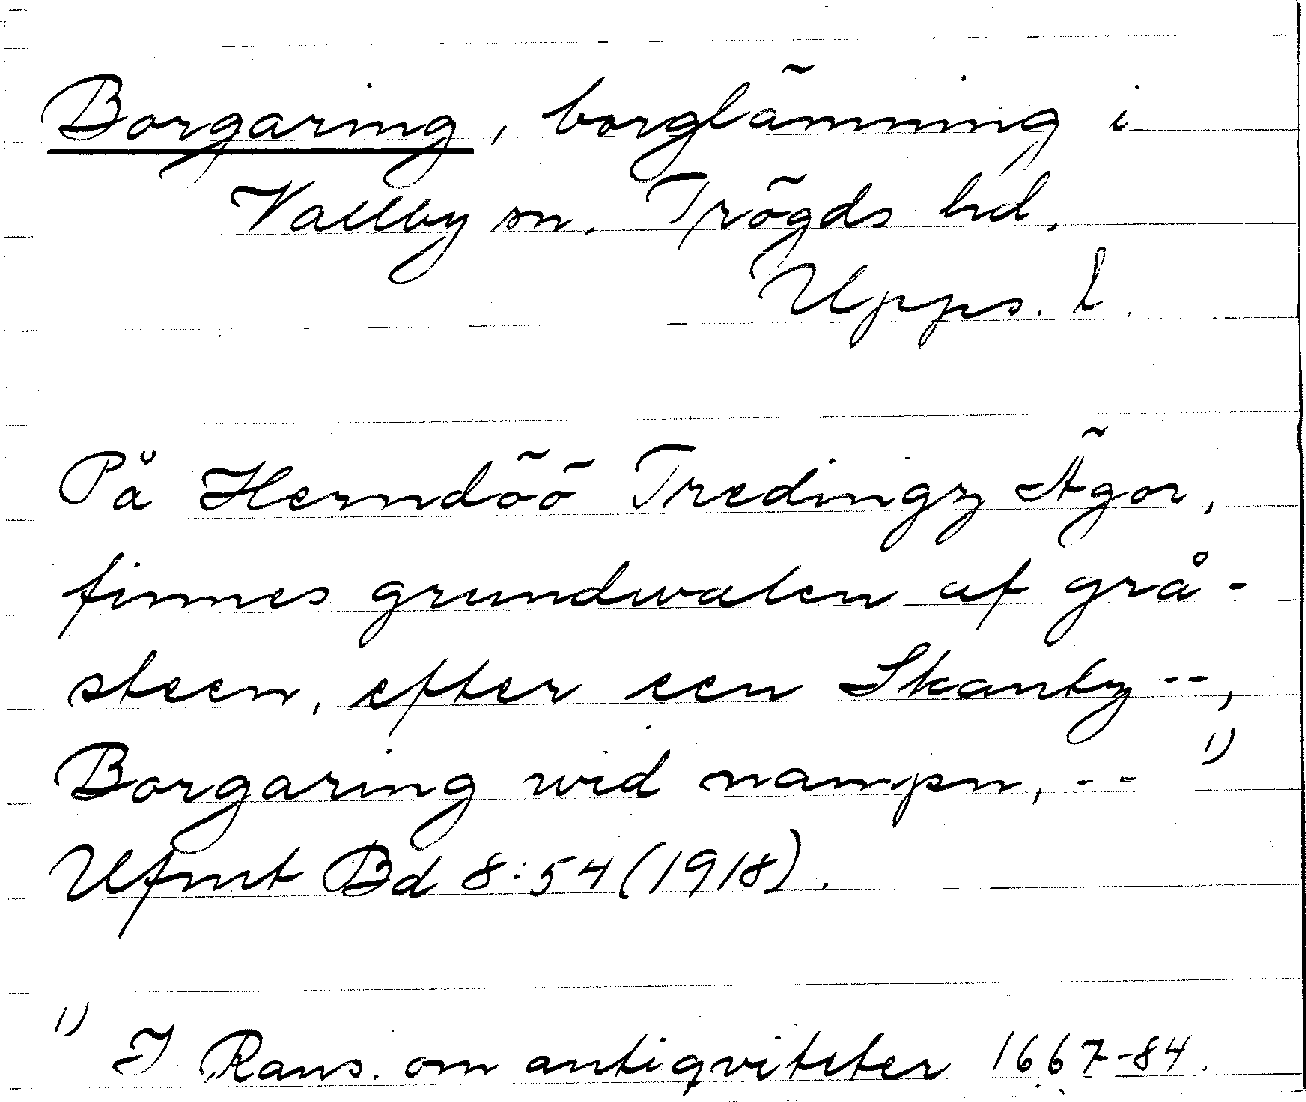 Borgaring, borglämning i
Vallby sn. Trögds hd.
Upps. l.
På Herndöö Tredingz Ägor,
finnes grundwalen af grå-
steen, efter een Skantz --,
Borgaring wid nampn, -- 1)
Ufmt Bd 8:54 (1918).
1) I Rans. om antiqviteter 1667-84.